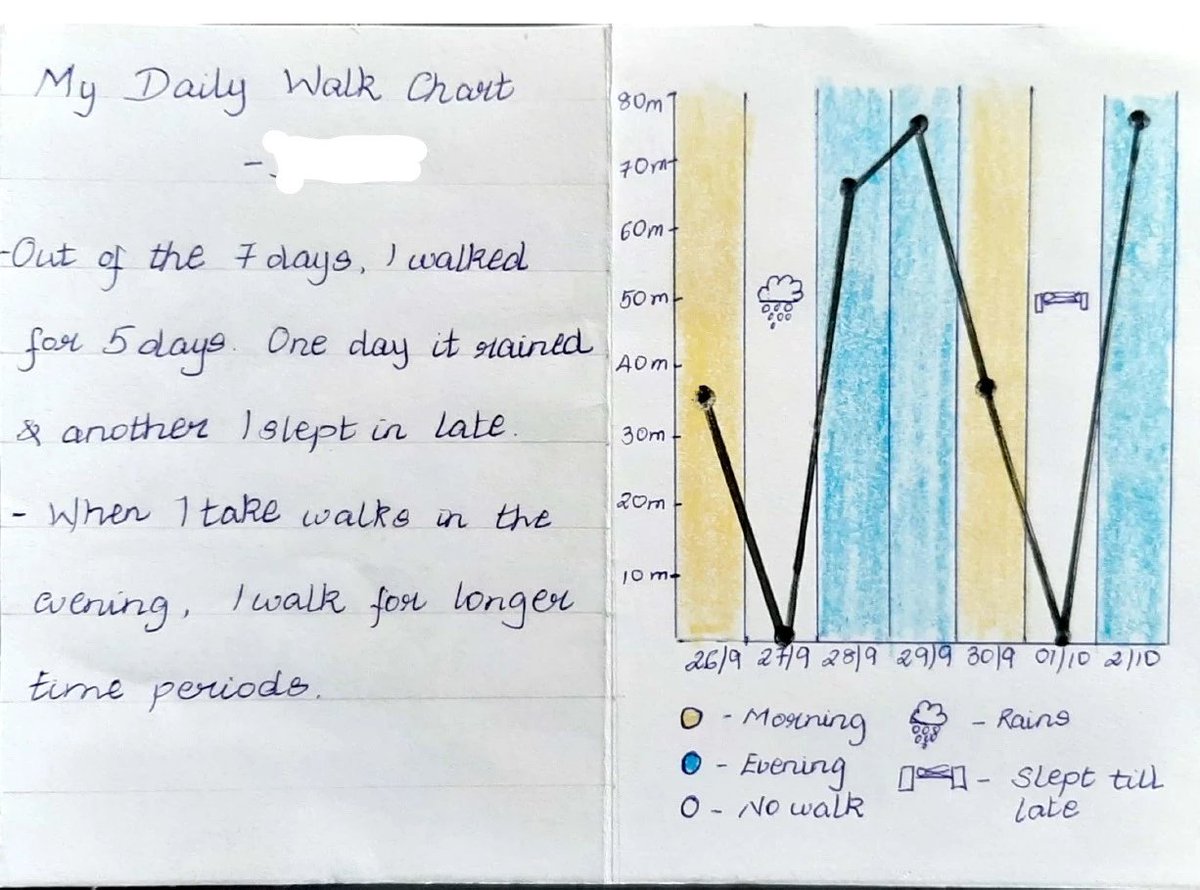 My Daily Walk Chart
-
-Out of the 7 days, I walked
for 5 days. One day it rained
& another I slept in late.
- When I take walks in the
evening, I walk for longer
time periods.
80m
70m
60m
50m
40m
30m
20m
10m
26/9 27/9 28/9 29/9 30/9 01/10 2/10
- Morning - Rains
- Evening - Slept till
- No walk late